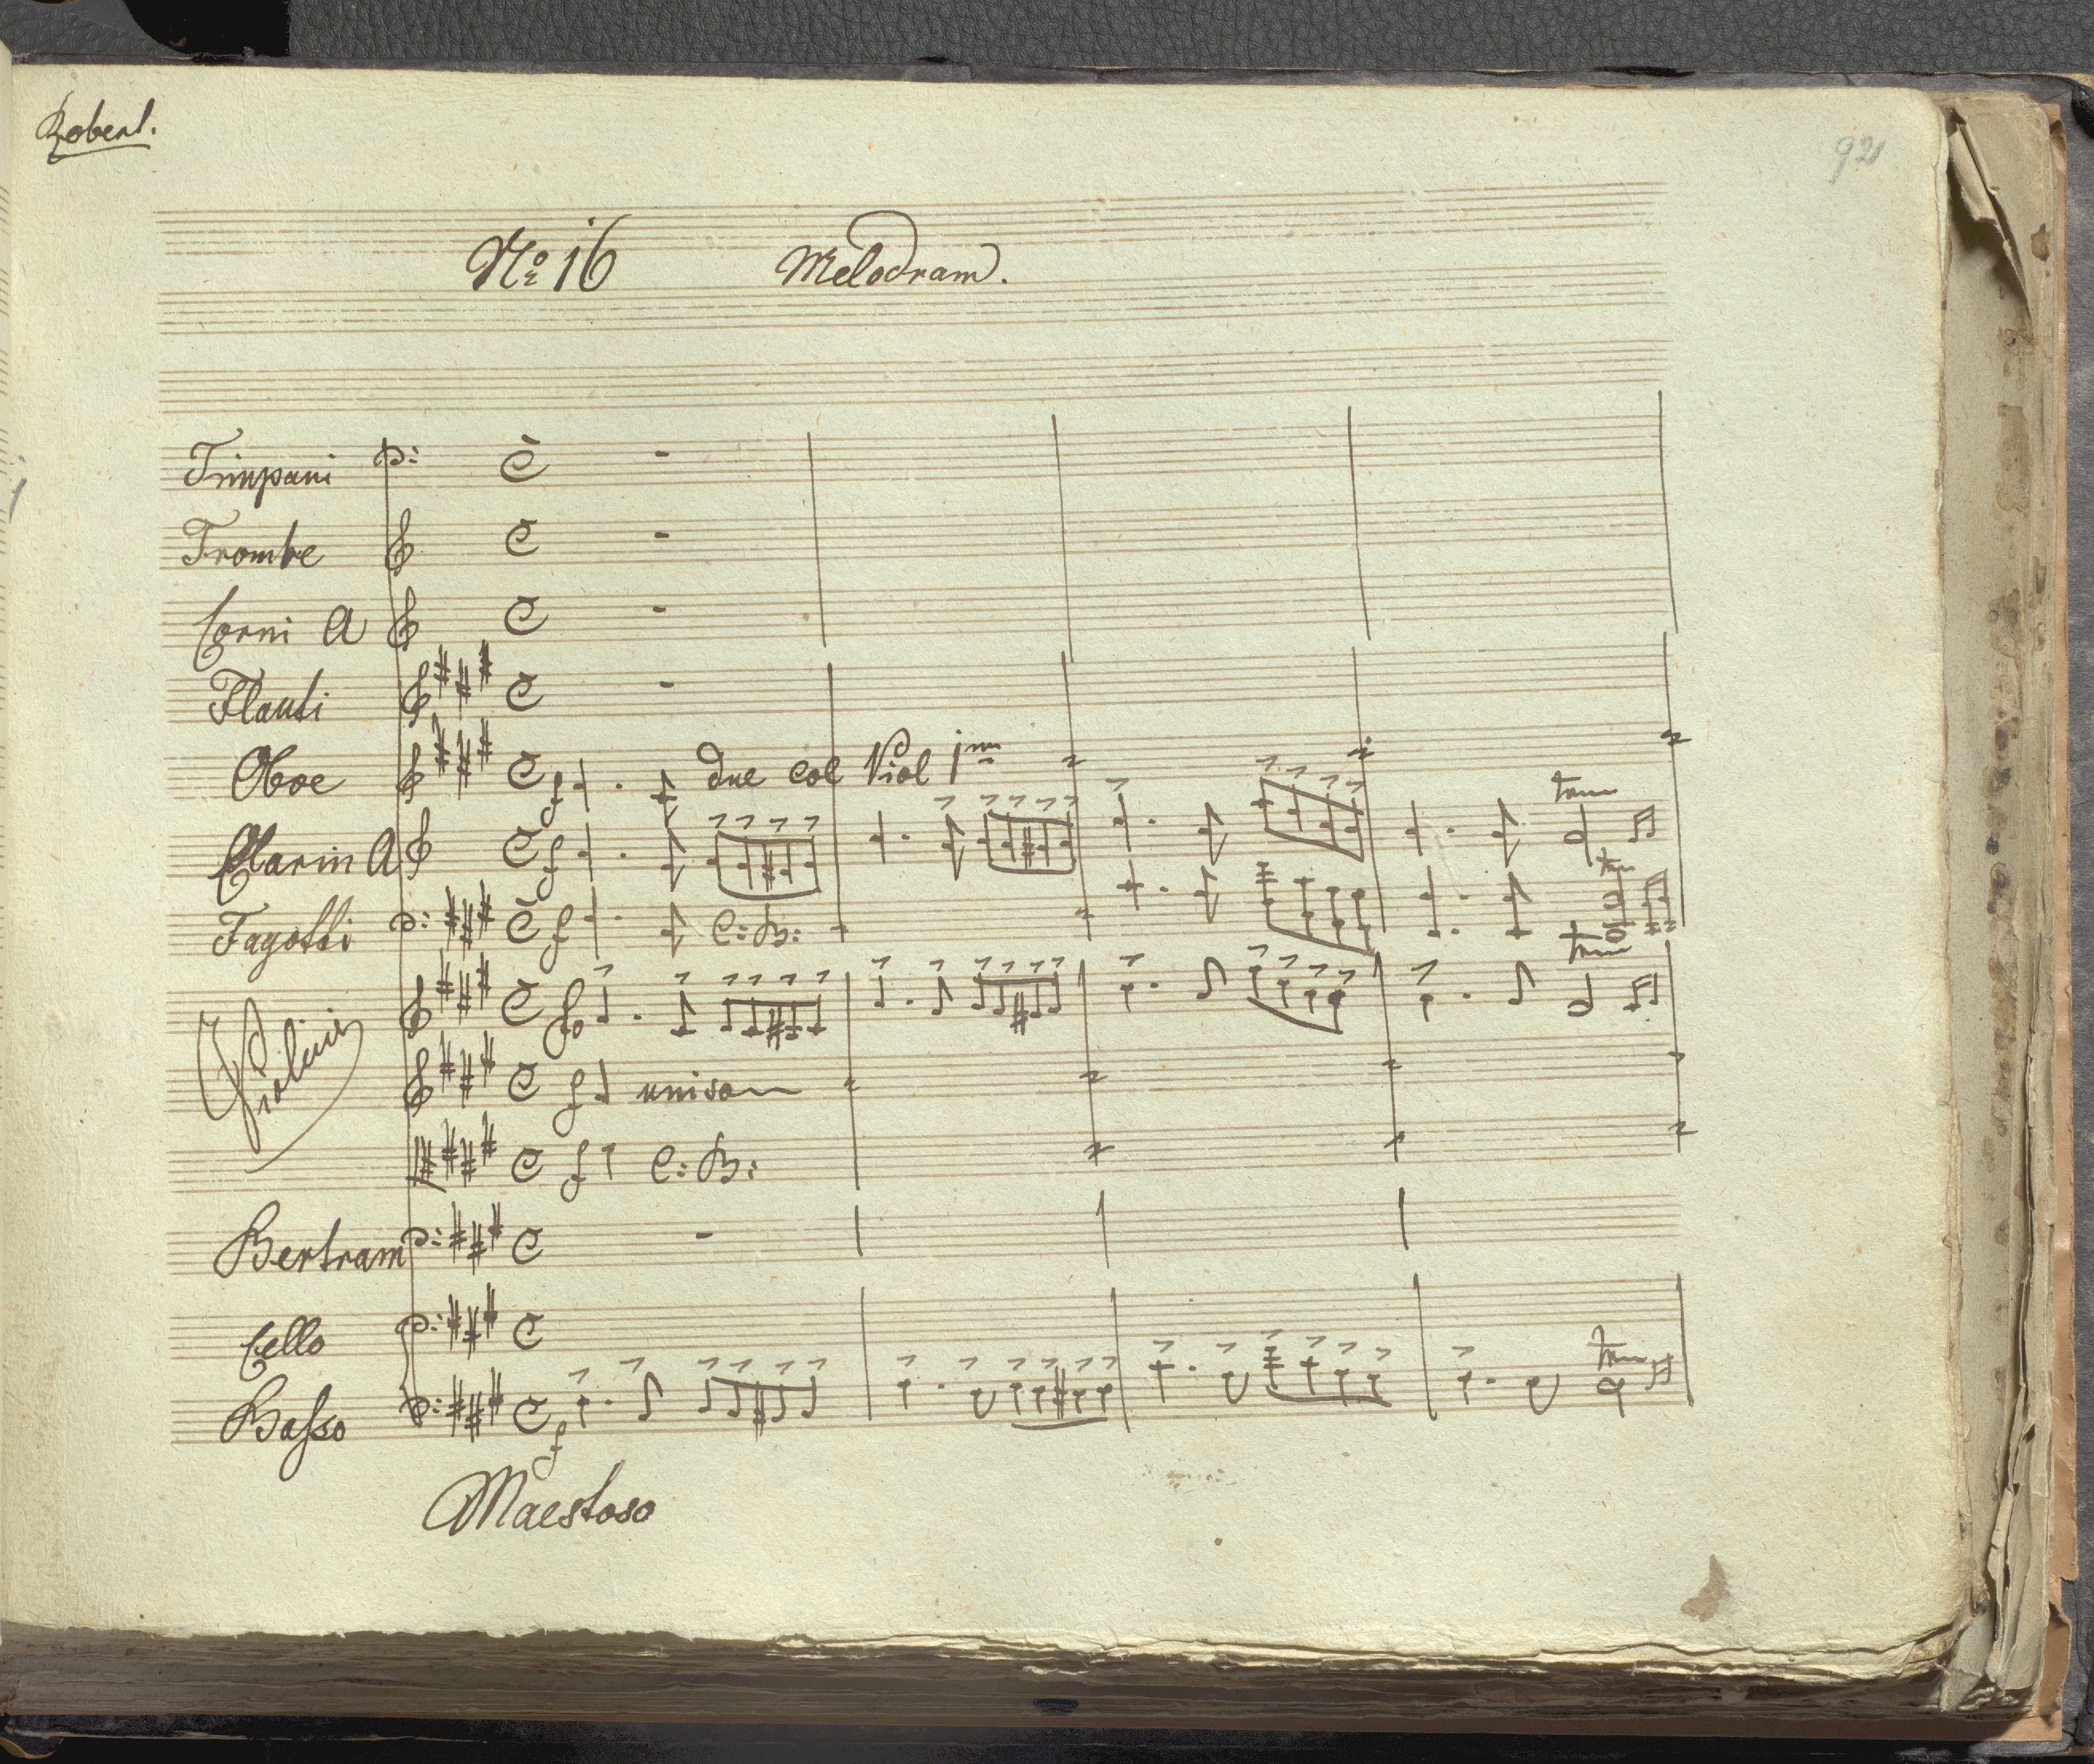 Robert.
921
No 16 Melodram.
Timpani
Trombe
Corni A
Flauti
Oboe f due col Viol 1mo
Clarin A f
Fagotti f C: B:
Violini fo
f unison
f C: B:
Bertram
Cello
Basso f
Maestoso